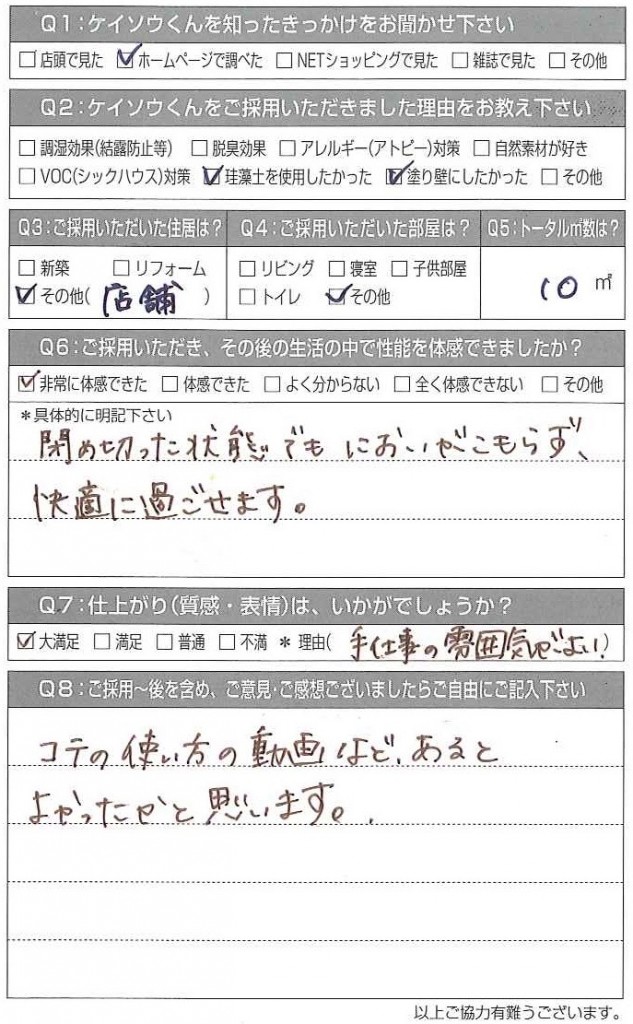 Q1:ケイソウくんを知ったきっかけをお聞かせ下さい
□店頭で見た ☑ホームページで調べた □NETショッピングで見た □雑誌で見た □その他
Q2:ケイソウくんをご採用いただきました理由をお教え下さい
□調湿効果(結露防止等) □脱臭効果 □アレルギー(アトピー)対策 □自然素材が好き
□VOC(シックハウス)対策 ☑珪藻土を使用したかった ☑塗り壁にしたかった □その他
Q3:ご採用いただいた住居は? Q4:ご採用いただいた部屋は? Q5:トータル㎡数は?
□新築 □リフォーム □リビング □寝室 □子供部屋 10 ㎡
☑その他(店舗) □トイレ ☑その他
Q6:ご採用いただき、その後の生活の中で性能を体感できましたか?
☑非常に体感できた □体感できた □よく分からない □全く体感できない □その他
*具体的に明記下さい
閉め切った状態でもにおいがこもらず、
快適に過ごせます。
Q7:仕上がり(質感・表情)は、いかがでしょうか?
☑大満足 □満足 □普通 □不満 *理由(手仕事の雰囲気がよい)
Q8:ご採用〜後を含め、ご意見・ご感想ございましたらご自由にご記入下さい
コテの使い方の動画など、あると
よかったかと思います。
以上ご協力有難うございます。